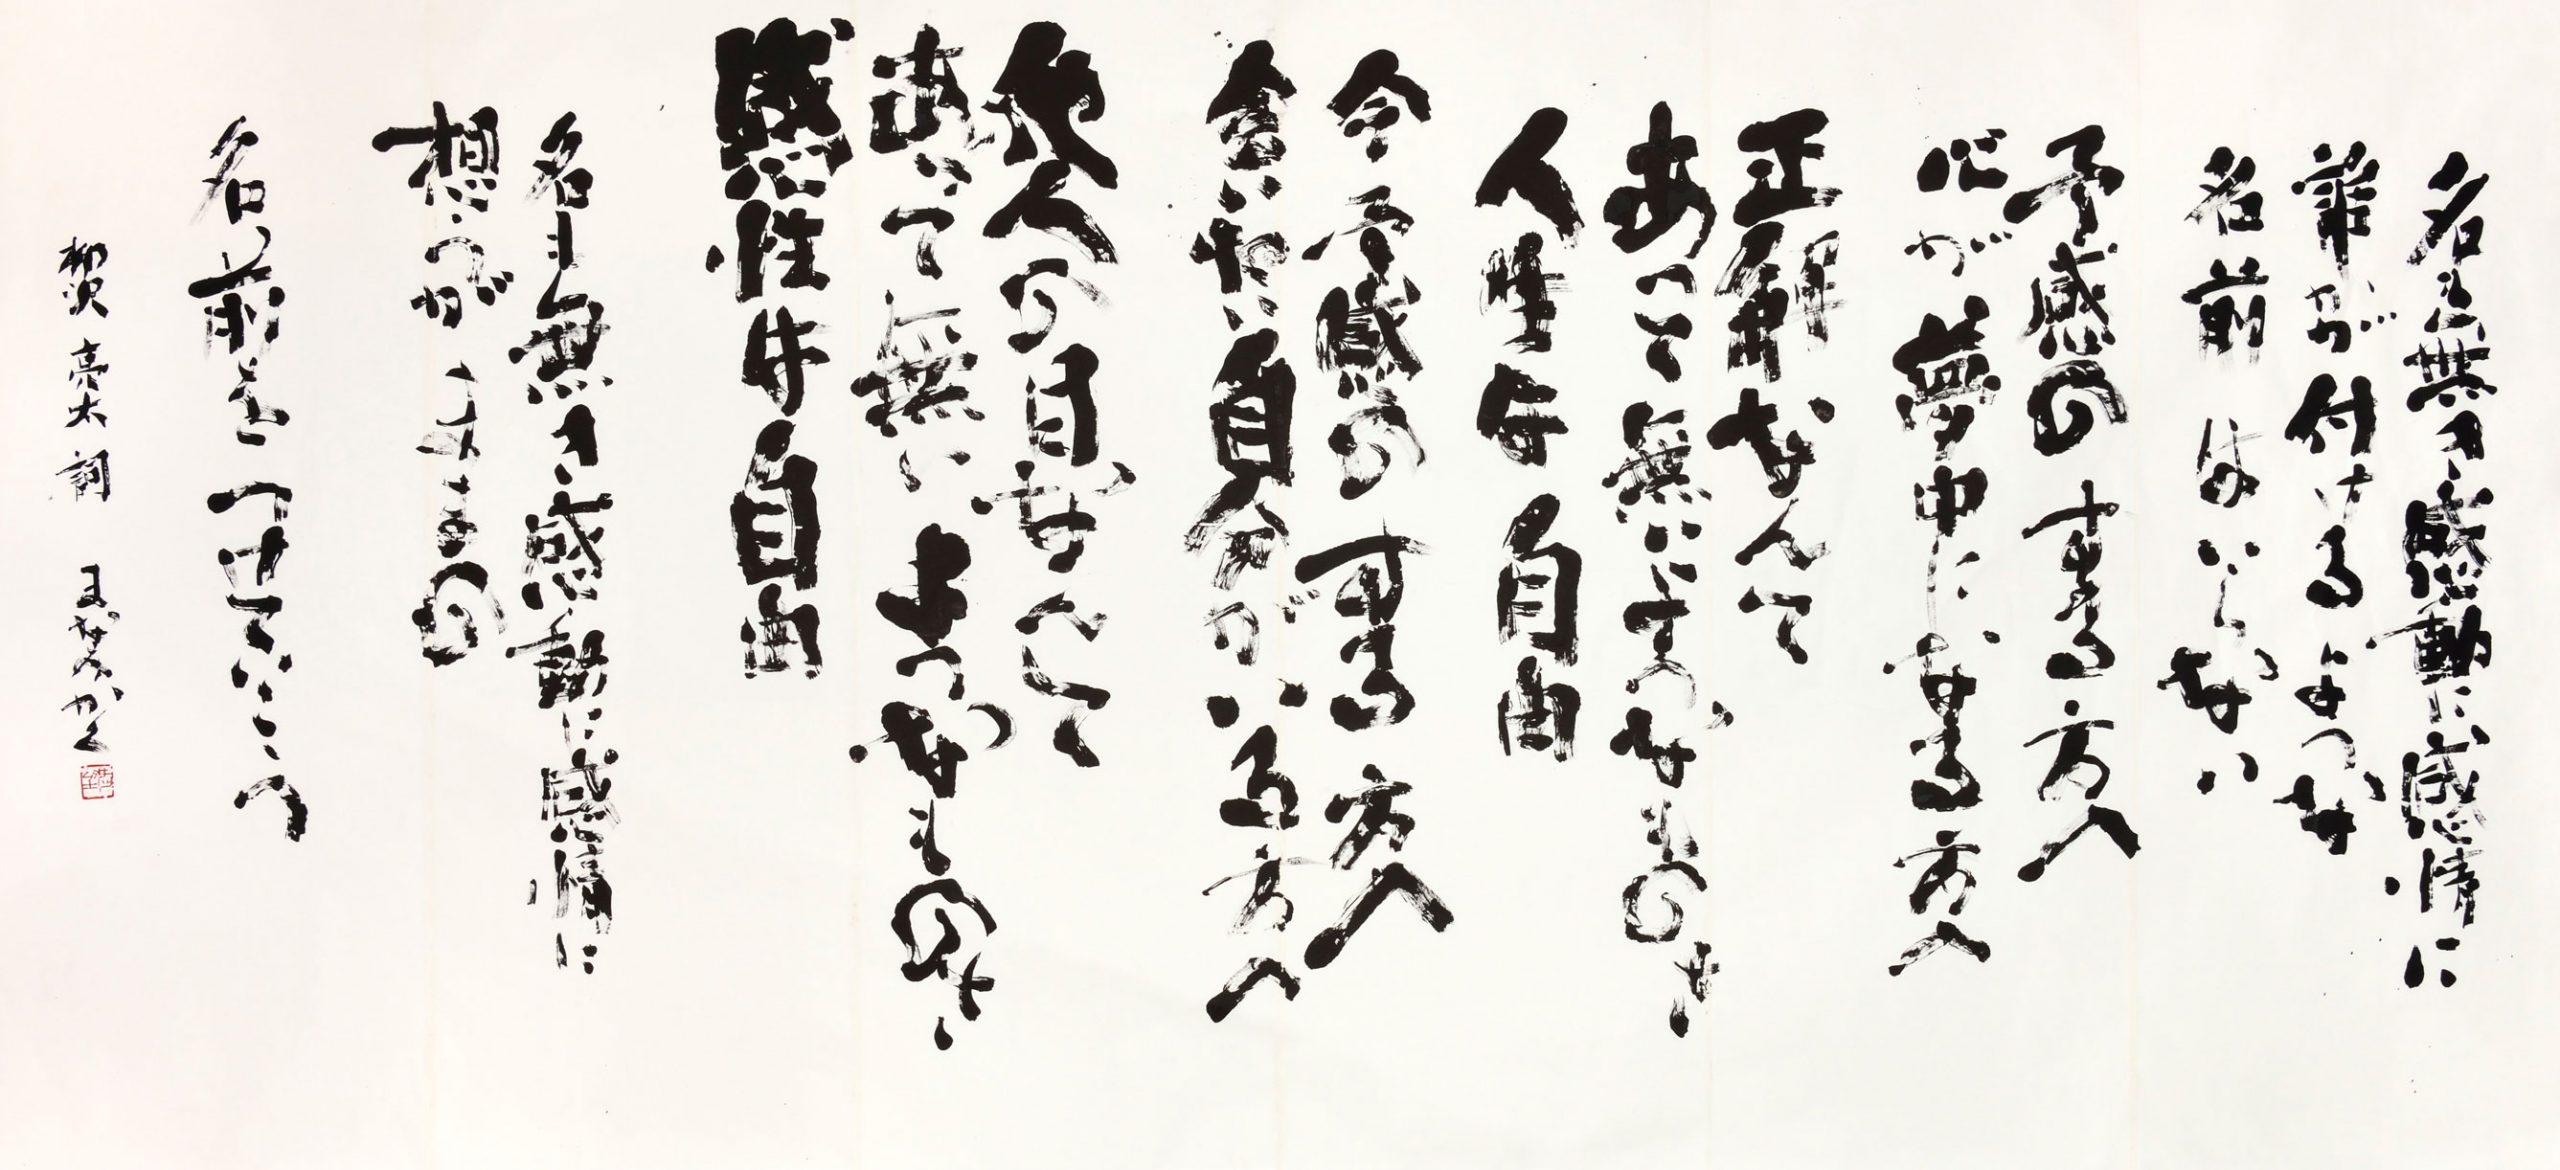 名も無き感動に感情に
が付けるような
名前はいらない
予感のする方へ
心が夢中になる方へ
正解なんて
あって無いようなものさ
人生は自由
今予感のする方へ
会いたい自分がいる方へ
他人の目なんて
あって無いようなものさ
感性は自由
名も無き感動に感情に
想うがままの
名前をつけていこう
柳沢亮太詞